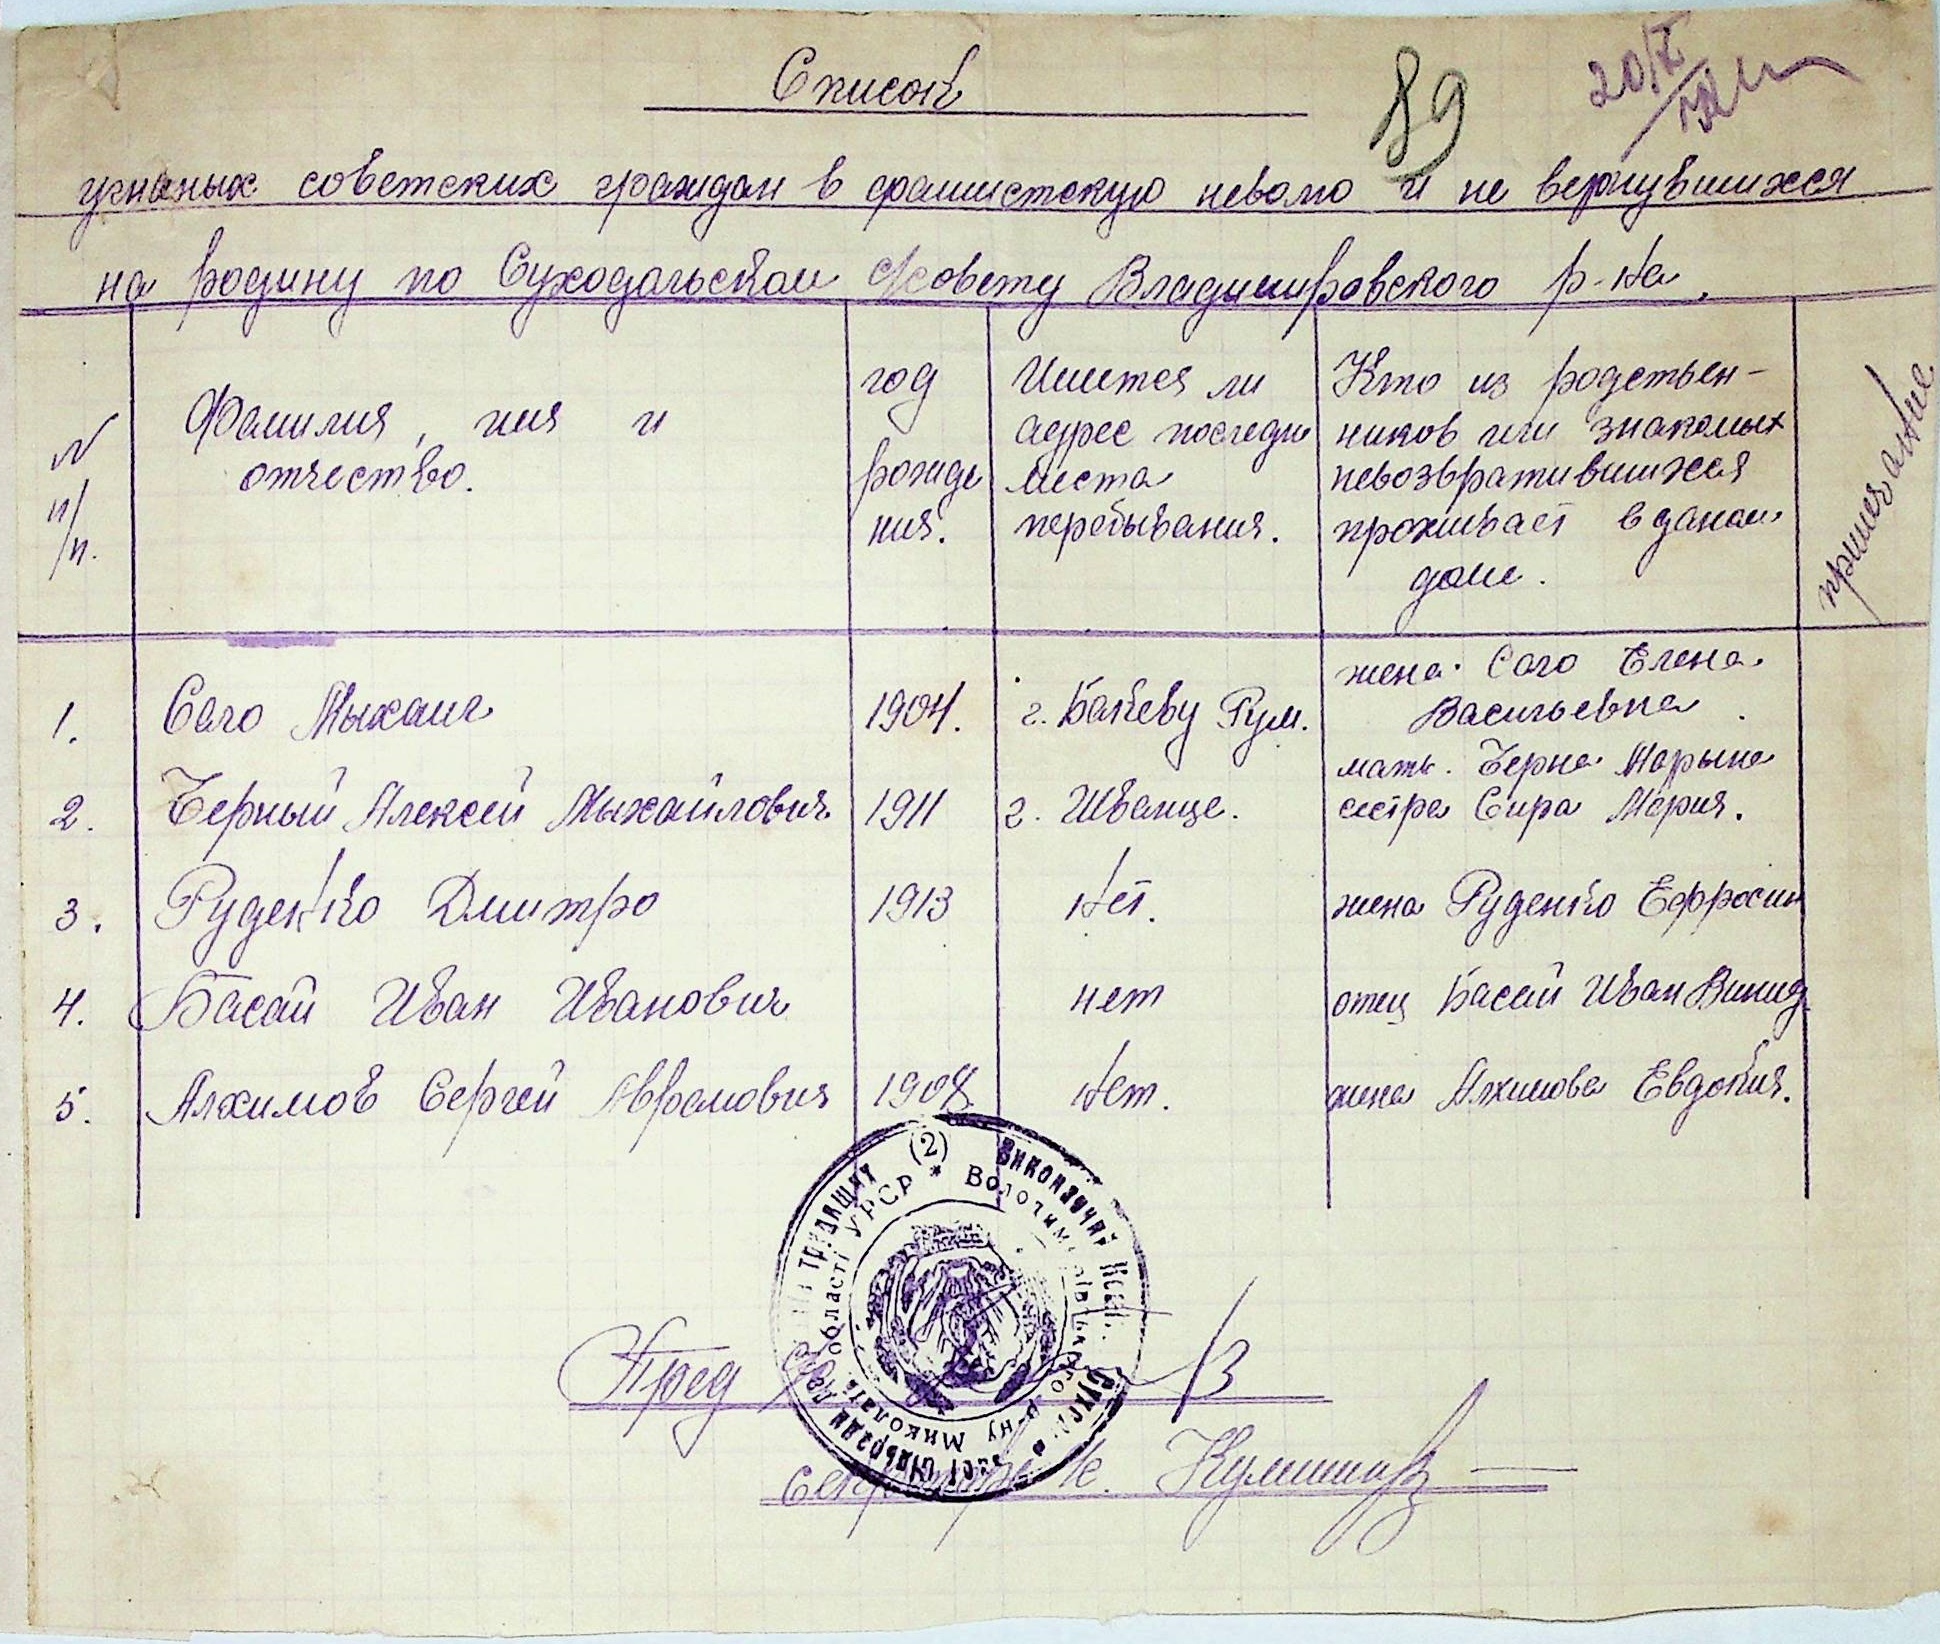 Список
89
угнаных советских граждан в фашистскую неволю и не вернувшихся
на родину по Суходольском с/совету Владимировского р-на.
N п/п.
Фамилия, имя и отчество.
год рожде ния.
Имется ли адрес последн места перебывания.
Кто из родствен- ников или знакомых невозвратившихся проживает в даном доме.
примечание
1. Саго Мыхаил 1904. г. Бакеву Рум. жена Саго Елена Васильевна
2. Черный Алексей Мыхайлович 1911 г. Иванце. мать. Черна Марына сестра Сира Мария.
3. Руденко Дмитро 1913 Нет. жена Руденко Ефросин
4. Басай Иван Иванович нет отец Басай Иван
5. Алхимов Сергей Аврамович 1908 Нет. жена Алхимова Евдокия.
(2) Виконавчий
УРСР * Володимирівського р-ну Миколаїв. області
Пред
Секретарь